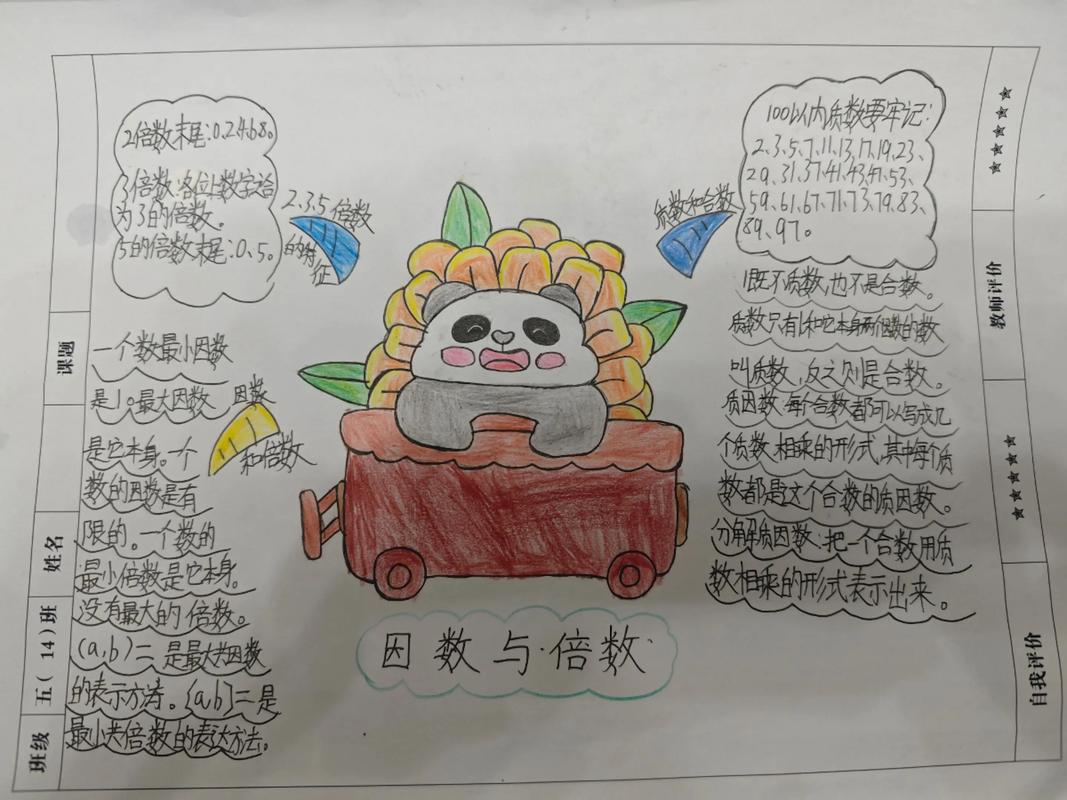 2倍数末尾:0.2.4.6.8。
3倍数:各位上数字洽
为3的倍数。
5的倍数末尾:0、5。
2.3.5倍数
的特
征
一个数最小因数
是1。最大因数
是它本身。一个
数的因数是有
限的。一个数的
最小倍数是它本身。
没有最大的倍数。
(a,b)=是最大共因数
的表示方法。[a,b]=是
最小共倍数的表达方法。
因数
和倍数
因数与·倍数
质数和合数
100以内质数要牢记:
2、3、5、7、11、13、17、19、23、
29、31、37、41、43、47、53、
59、61、67、71、73、79、83、
89、97。
1既不质数,也不是合数。
质数:只有1和它本身两个因数的数
叫质数,反之则是合数。
质因数:每个合数都可以写成几
个质数相乘的形式,其中每个质
数都是这个合数的质因数。
分解质因数:把一个合数用质
数相乘的形式表示出来。
课题
姓名
五(14)班
班级
★★★★★
教师评价
★★★★★
自我评价